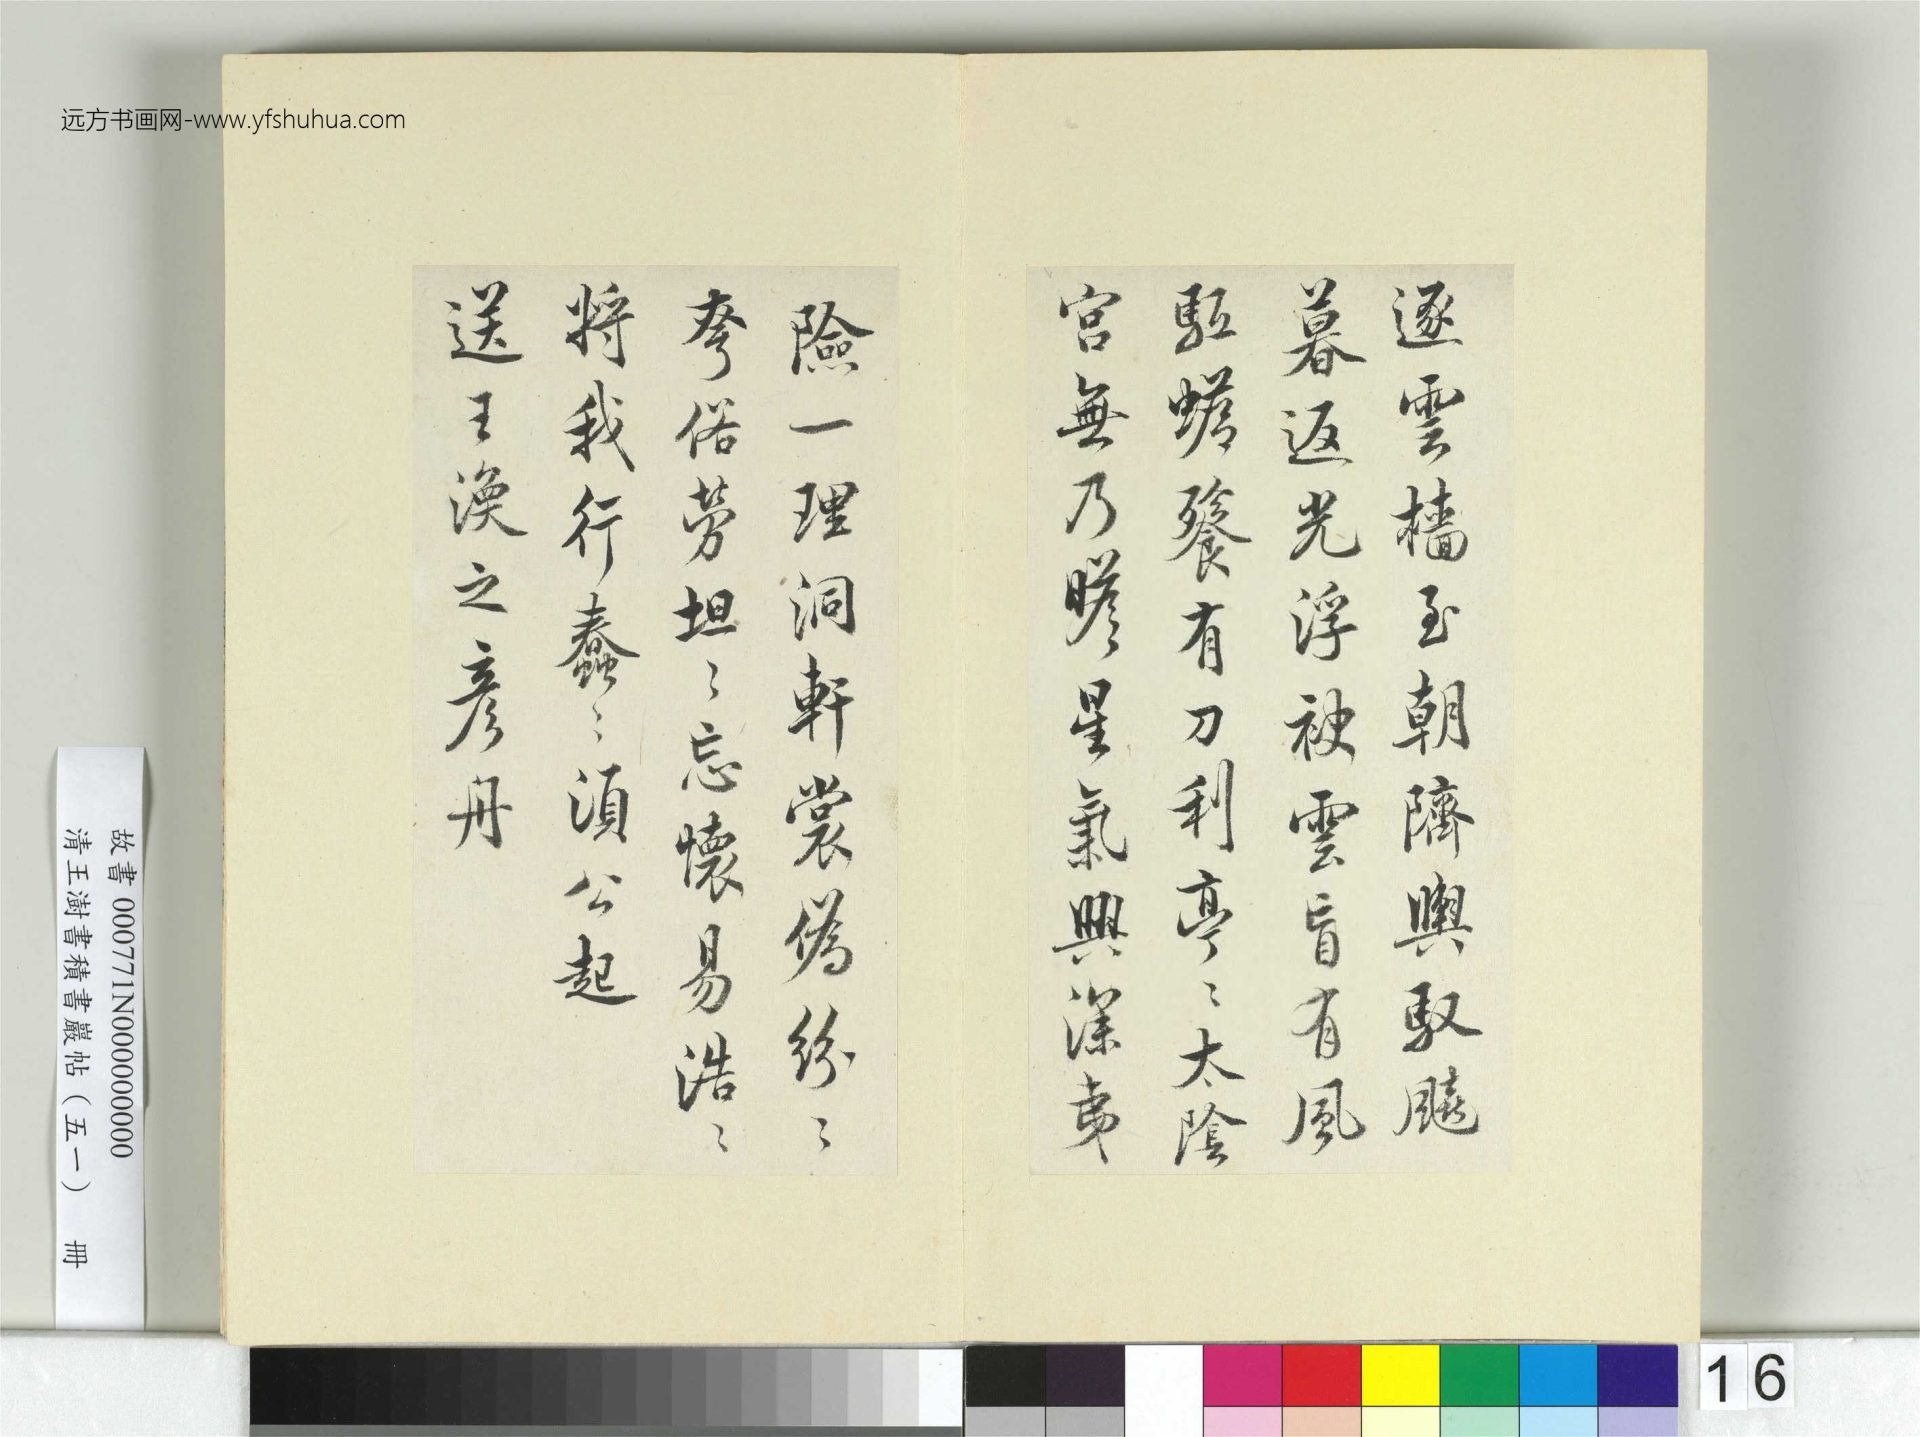 远方书画网-www.yfshuhua.com
逐雲檣至朝隮輿馭飈
暮返光浮袂雲盲有風
駈蟾餮有刀利亭〻太陰
宮無乃瞻星氣興深夷
險一理洞軒裳偽紛〻
夸俗勞坦〻忘懷易浩〻
將我行蠢〻須公起
送王渙之彥舟
故書 000771N000000000
清王澍書積書巖帖(五一) 冊
16